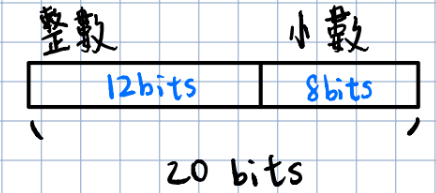 整數 小數
12bits 8bits
20 bits